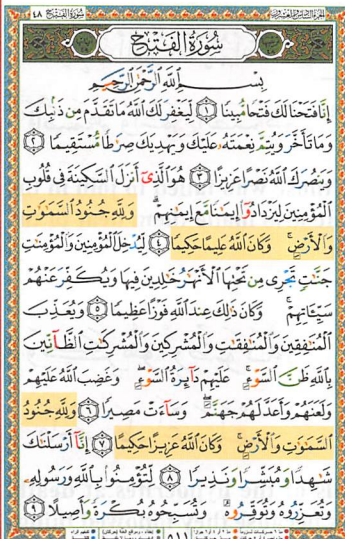 سُورَةُ الفَتْحِ ٤٨
سُورَةُ الفَتْحِ
بِسْمِ اللَّهِ الرَّحْمَٰنِ الرَّحِيمِ
إِنَّا فَتَحْنَا لَكَ فَتْحًا مُّبِينًا ١ لِّيَغْفِرَ لَكَ اللَّهُ مَا تَقَدَّمَ مِن ذَنبِكَ
وَمَا تَأَخَّرَ وَيُتِمَّ نِعْمَتَهُ عَلَيْكَ وَيَهْدِيَكَ صِرَٰطًا مُّسْتَقِيمًا ٢
وَيَنصُرَكَ اللَّهُ نَصْرًا عَزِيزًا ٣ هُوَ الَّذِي أَنزَلَ السَّكِينَةَ فِي قُلُوبِ
الْمُؤْمِنِينَ لِيَزْدَادُوا إِيمَٰنًا مَّعَ إِيمَٰنِهِمْ ۗ وَلِلَّهِ جُنُودُ السَّمَٰوَٰتِ
وَالْأَرْضِ ۚ وَكَانَ اللَّهُ عَلِيمًا حَكِيمًا ٤ لِّيُدْخِلَ الْمُؤْمِنِينَ وَالْمُؤْمِنَٰتِ
جَنَّٰتٍ تَجْرِي مِن تَحْتِهَا الْأَنْهَٰرُ خَٰلِدِينَ فِيهَا وَيُكَفِّرَ عَنْهُمْ
سَيِّـَٔاتِهِمْ ۚ وَكَانَ ذَٰلِكَ عِندَ اللَّهِ فَوْزًا عَظِيمًا ٥ وَيُعَذِّبَ
الْمُنَٰفِقِينَ وَالْمُنَٰفِقَٰتِ وَالْمُشْرِكِينَ وَالْمُشْرِكَٰتِ الظَّانِّينَ
بِاللَّهِ ظَنَّ السَّوْءِ ۚ عَلَيْهِمْ دَائِرَةُ السَّوْءِ ۖ وَغَضِبَ اللَّهُ عَلَيْهِمْ
وَلَعَنَهُمْ وَأَعَدَّ لَهُمْ جَهَنَّمَ ۖ وَسَاءَتْ مَصِيرًا ٦ وَلِلَّهِ جُنُودُ
السَّمَٰوَٰتِ وَالْأَرْضِ ۚ وَكَانَ اللَّهُ عَزِيزًا حَكِيمًا ٧ إِنَّا أَرْسَلْنَٰكَ
شَٰهِدًا وَمُبَشِّرًا وَنَذِيرًا ٨ لِّتُؤْمِنُوا بِاللَّهِ وَرَسُولِهِ
وَتُعَزِّرُوهُ وَتُوَقِّرُوهُ ۚ وَتُسَبِّحُوهُ بُكْرَةً وَأَصِيلًا ٩
٥١١